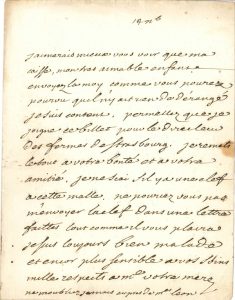 19 n.b
j'aimerais mieux vous voir que ma
caisse, mon très aimable enfant
envoyez la moy comme vous pourez
pourvu quel n'y ait rien de dérangé
je suis content. permettez que je
joigne ce billet pour le directeur
des fermes de strasbourg. je remets
le tout a votre bonté et a votre
amitié. je ne sai s'il y a une clef
a cette malle. ne pouriez vous pas
m'envoyer la clef dans une lettre
faittes tout comme il vous plaira
je suis toujours bien malade
et encor plus sensible a vos soins
mille respects a me votre mere
ne m'oubliez jamais aupres de mr leon